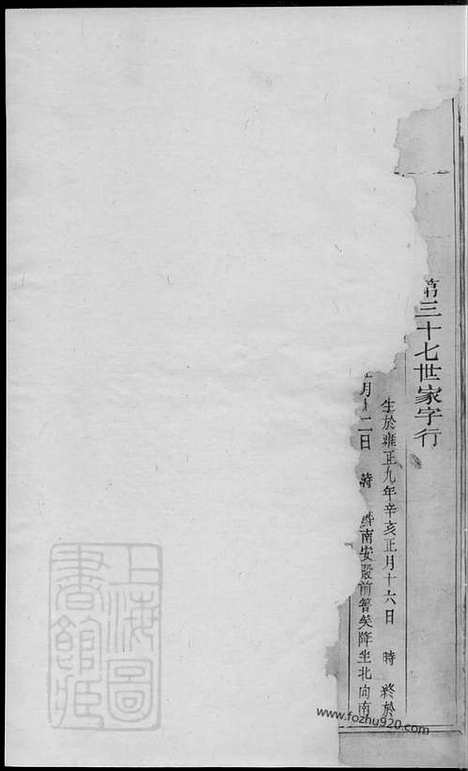 三十七世家字行
生於雍正九年辛亥正月十六日 時 終於
月 二日 時 南安殿前 矣降坐北向南
上海圖書館藏
www.fozhu920.com